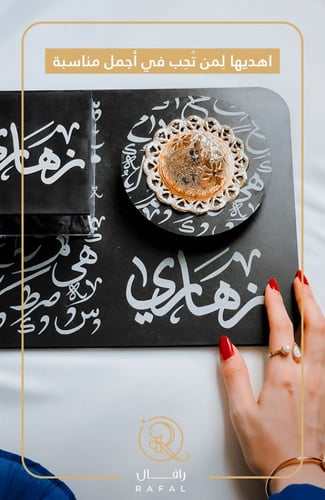 اهديها لِمن تُحِب في أجمل مناسبة
زهاري
زهاري
رافال
RAFAL